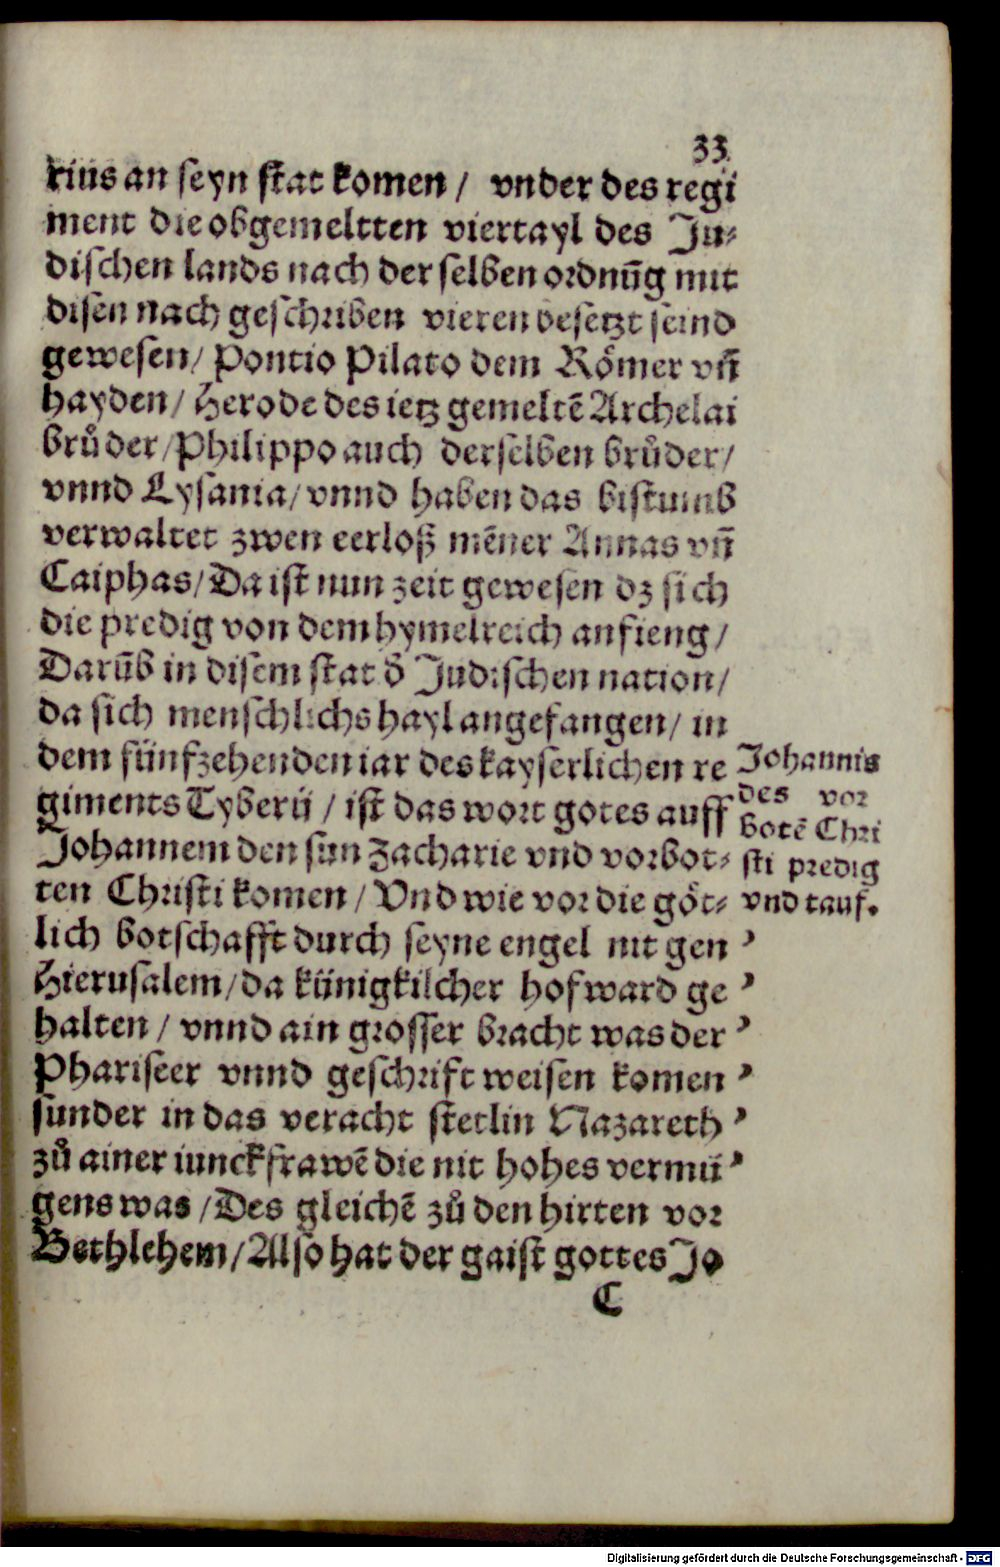 33
rius an seyn stat komen / vnder des regi
ment die obgemeltten viertayl des Ju⸗
dischen lands nach der selben ordnūg mit
disen nach geschriben vieren besetzt seind
gewesen / Pontio Pilato dem Römer vñ
hayden / Herode des ietz gemeltē Archelai
brůder / Philippo auch derselben brůder /
vnnd Lysania / vnnd haben das bistumb
verwaltet zwen eerloß mēner Annas vñ
Caiphas / Da ist nun zeit gewesen dz sich
die predig von dem hymelreich anfieng /
Darūb in disem stat d̄ Judischen nation /
da sich menschlichs hayl angefangen / in
dem fünfzehenden iar des kayserlichen re
giments Tyberij / ist das wort gotes auff
Johannem den sun Zacharie vnd vorbot⸗
ten Christi komen / Vnd wie vor die göt⸗
lich botschafft durch seyne engel nit gen ’
Hierusalem / da künigkilcher hof ward ge ’
halten / vnnd ain grosser bracht was der ’
Phariseer vnnd geschrift weisen komen ’
sunder in das veracht stetlin Nazareth ’
zů ainer iunckfrawē die nit hohes vermü ’
gens was / Des gleichē zů den hirten vor
Bethlehem / Also hat der gaist gottes Jo
C
Johannis
des vor
botē Chri
sti predig
vnd tauf.
Digitalisierung gefördert durch die Deutsche Forschungsgemeinschaft - DFG